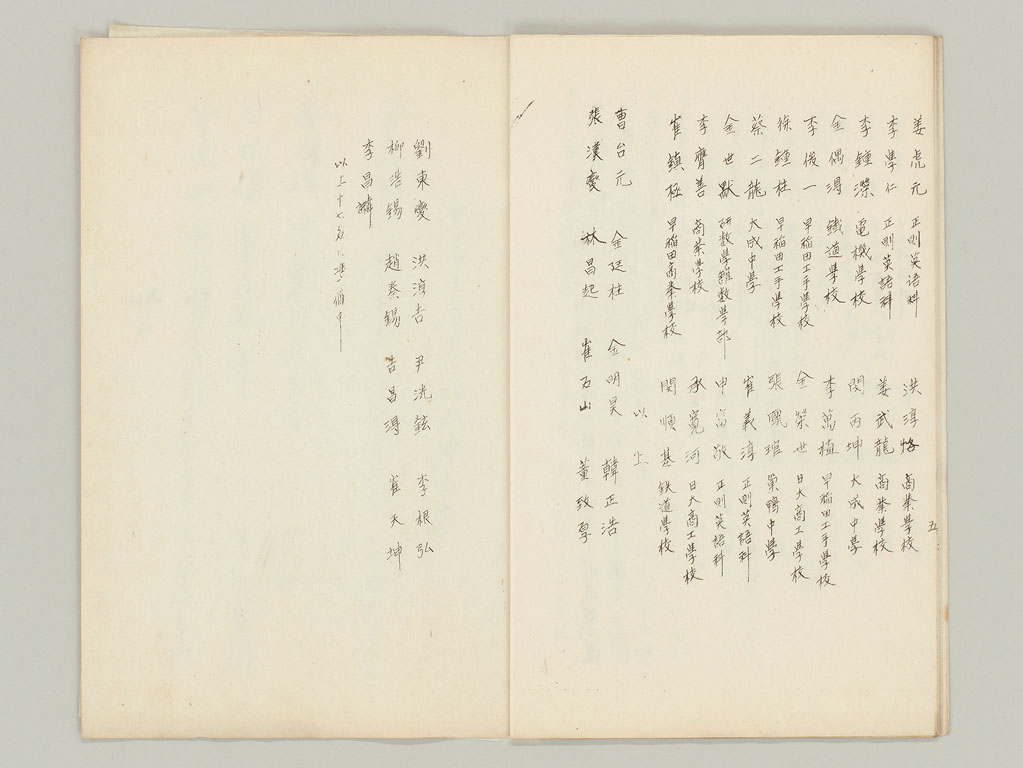 姜虎元 正則英語科
李學仁 正則英語科
李鍾濚 電機學校
金偶淂 鐵道學校
李俊一 早稲田工手學校
徐鍾柱 早稲田工手學校
蔡二龍 大成中學
金世默 研数學館数學部
李齊善 商業學校
崔鎮極 早稲田商業學校
五
洪淳恪 商業學校
姜武龍 商業學校
閔丙坤 大成中學
李萬植 早稲田工手學校
金榮世 日大商工學校
張珮琯 巣鴨中學
崔義淳 正則英語科
申富敬 正則英語科
承寬河 日大商工學校
閔順基 鉄道學校
以上
曹台元 金廷柱 金明昊 韓正浩
張漢燮 林昌起 崔石山 董致
劉東燮 洪淳吉 尹洸鉉 李根弘
柳浩錫 趙泰錫 吉昌淂 崔天坤
李昌
以上十七名